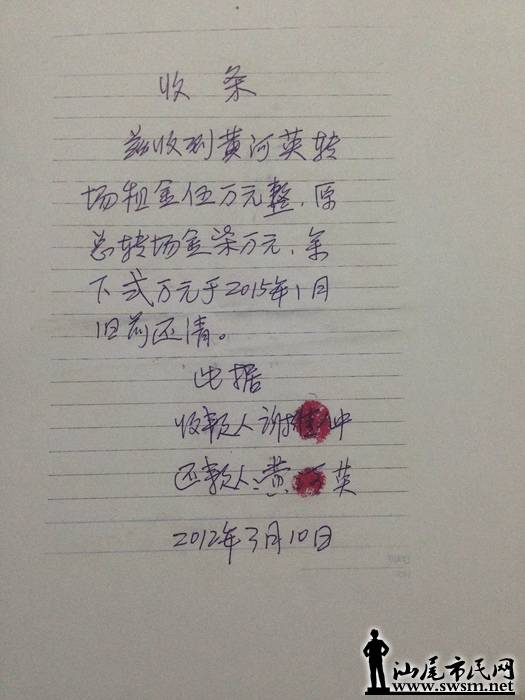 收条
兹收到黄河英转
场租金伍万元整,原
总转场金柒万元,余
下弍万元于2015年1月
1日前还清。
此据
收款人谢
还款人:黄河英
2012年3月10日
汕尾市民网
www.swsm.net